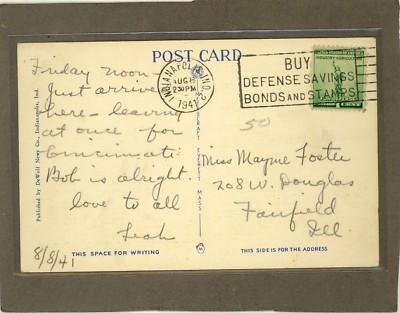 POST CARD
Friday noon -
Just arrived
here - leaving
at once for
Cincinnati
Bob is alright.
love to all
Leah
8/8/41
THIS SPACE FOR WRITING
Published by DeWolf News Co., Indianapolis, Ind.
INDIANAPOLIS, IND.
AUG 8
2 30 PM
1941
BUY
DEFENSE SAVINGS
BONDS AND STAMPS
INDUSTRY AGRICULTURE
1 CENT
50
Miss Mayme Foster
208 W. Douglas
Fairfield
Ill.
THIS SIDE IS FOR THE ADDRESS